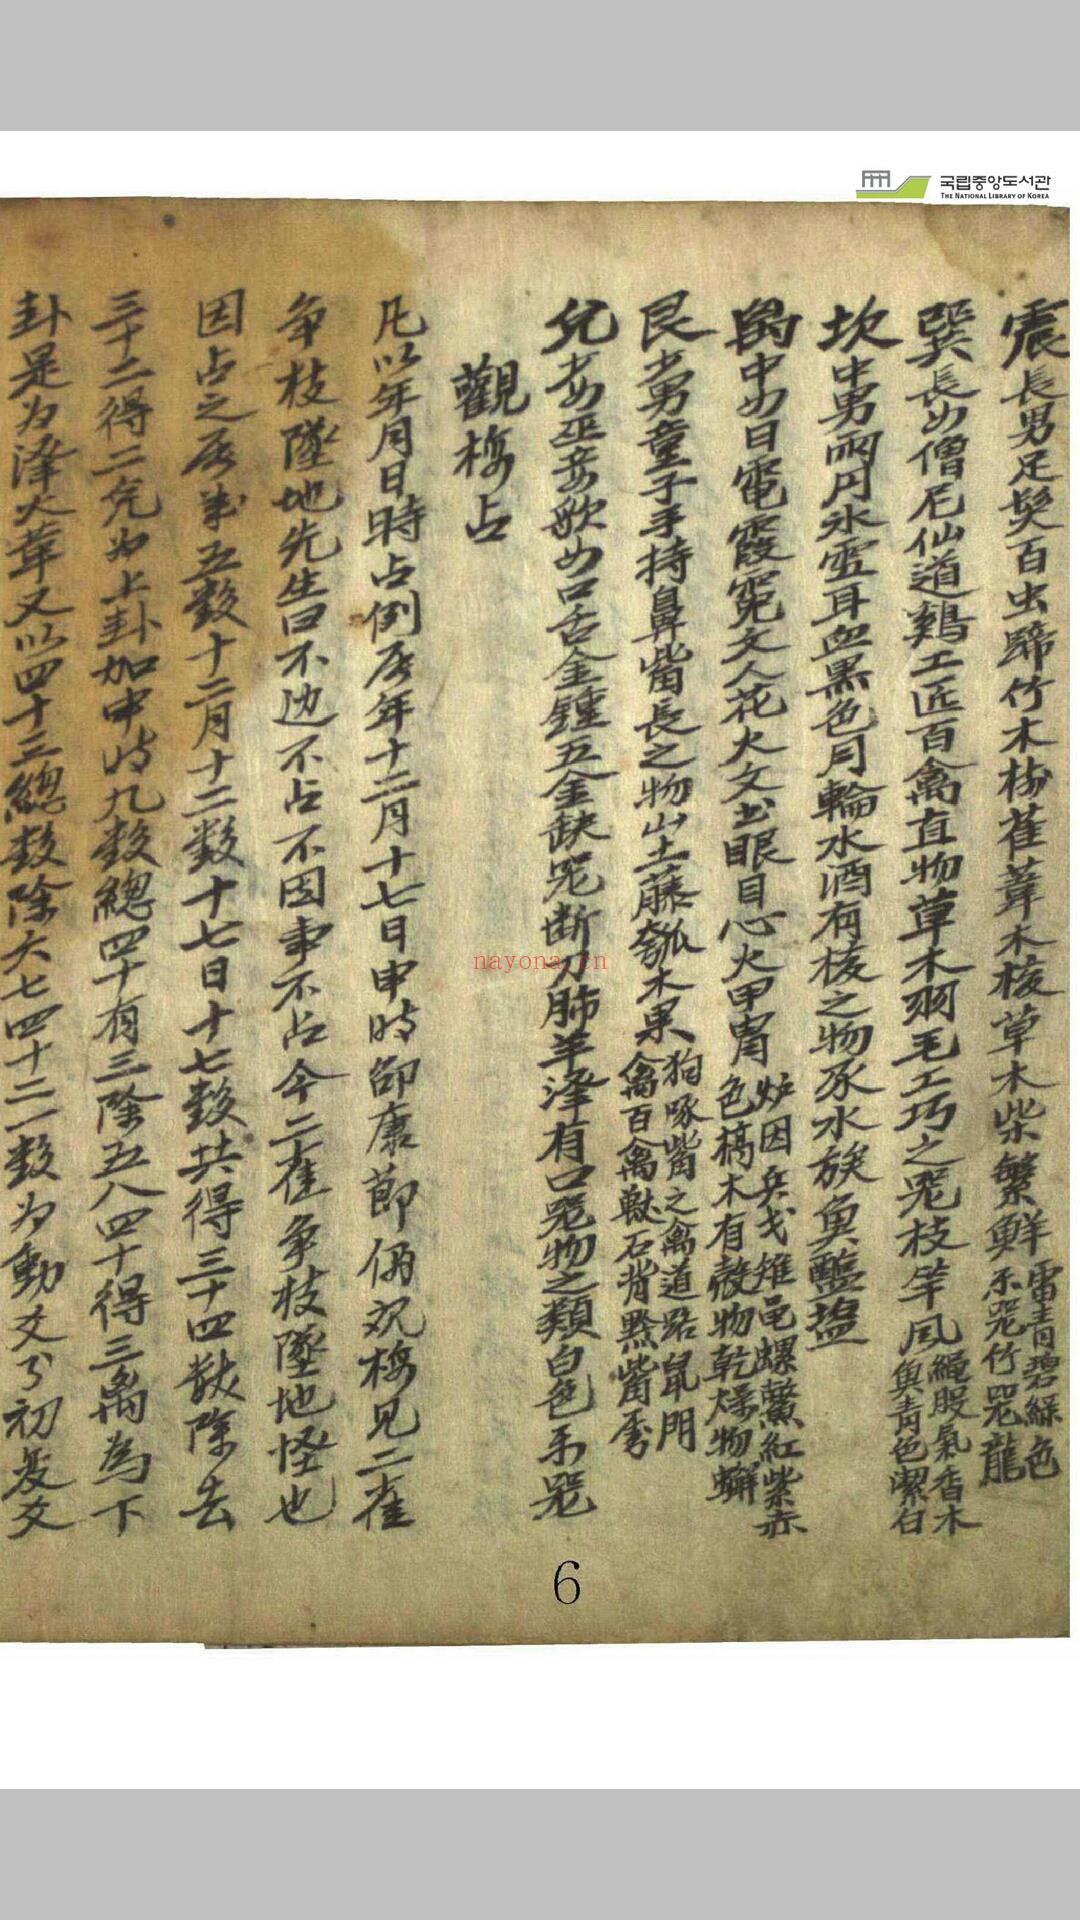 국립중앙도서관
THE NATIONAL LIBRARY OF KOREA
震長男足髮百虫蹄竹木萑葦木核草木柴繁鮮
雷青碧綠色
樂器竹器龍
巽長女僧尼仙道鷄工匠百禽直物草木羽毛工巧之器枝竿風
繩股氣香木
臭青色潔白
坎中男雨月氷雪耳血黑色月輪水酒有核之物豕水族魚醢盐
离中女日電霞霓文人花火文書眼目心火甲胄
炉因兵戈雉龜螺鱉紅紫赤
色槁木有殼物乾燥物蠏
艮少男童子手持鼻觜長之物山土藤瓠木果
狗啄觜之禽道路鼠門
禽百禽獸石背黔觜
兌少女巫妾歌女口舌金鍾五金缺器断刀肺羊澤有口器物之類白色樂器
觀梅占
凡以年月日時占例辰年十二月十七日申時邵康節偶觀梅見二雀
爭枝墜地先生曰不動不占不因事不占今二雀爭枝墜地怪也
因占之辰年五数十二月十二数十七日十七数共得三十四数除去
三十二得二兌为上卦加申时九数總四十有三除五八四十得三离為下
卦是为澤火革又以四十三總数除六七四十二一数为動爻乃初爻
nayona.cn
6